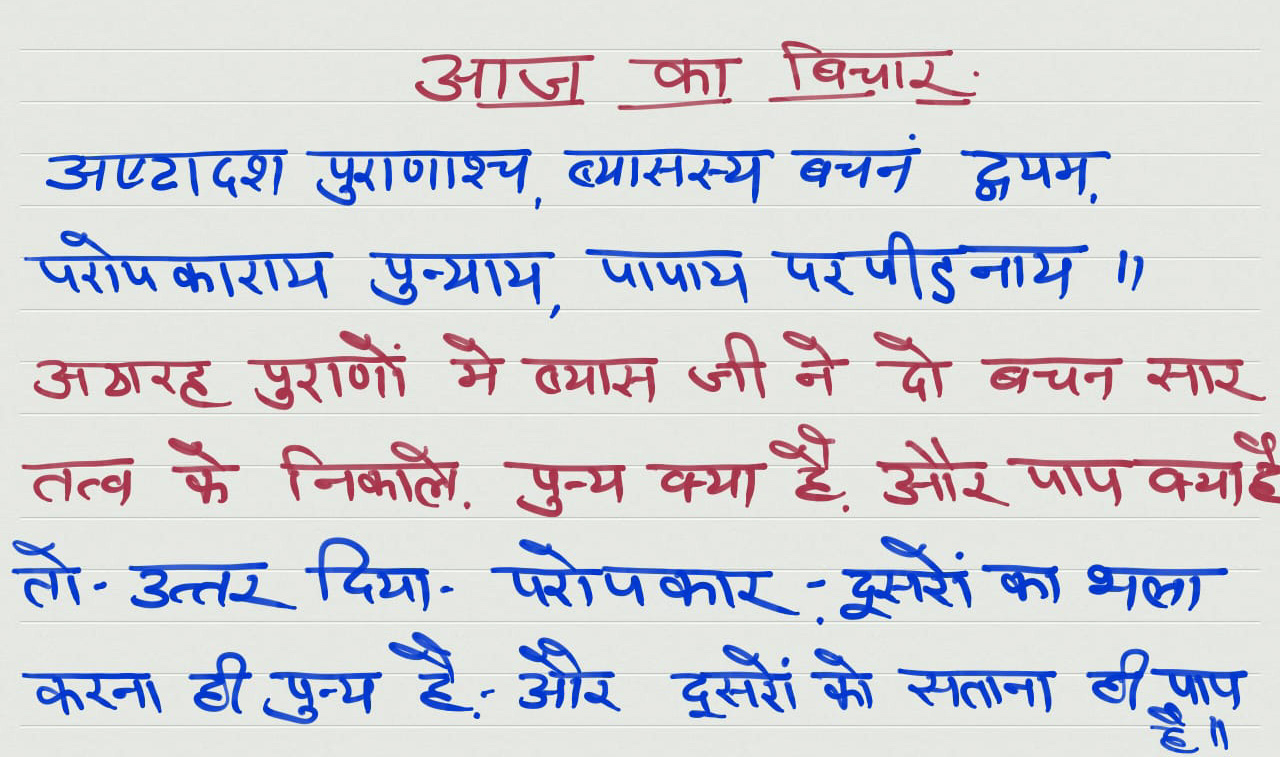 आज का बिचार.
अष्टादश पुराणाश्च, ब्यासस्य बचनं द्वयम्,
परोपकाराय पुन्याय, पापाय परपीडनाय ॥
अठारह पुराणों मे ब्यास जी ने दो बचन सार
तत्व के निकाले. पुन्य क्या है. और पाप क्या है
तो- उत्तर दिया- परोपकार -. दूसरों का भला
करना ही पुन्य है.- और दूसरों को सताना ही पाप
है ॥